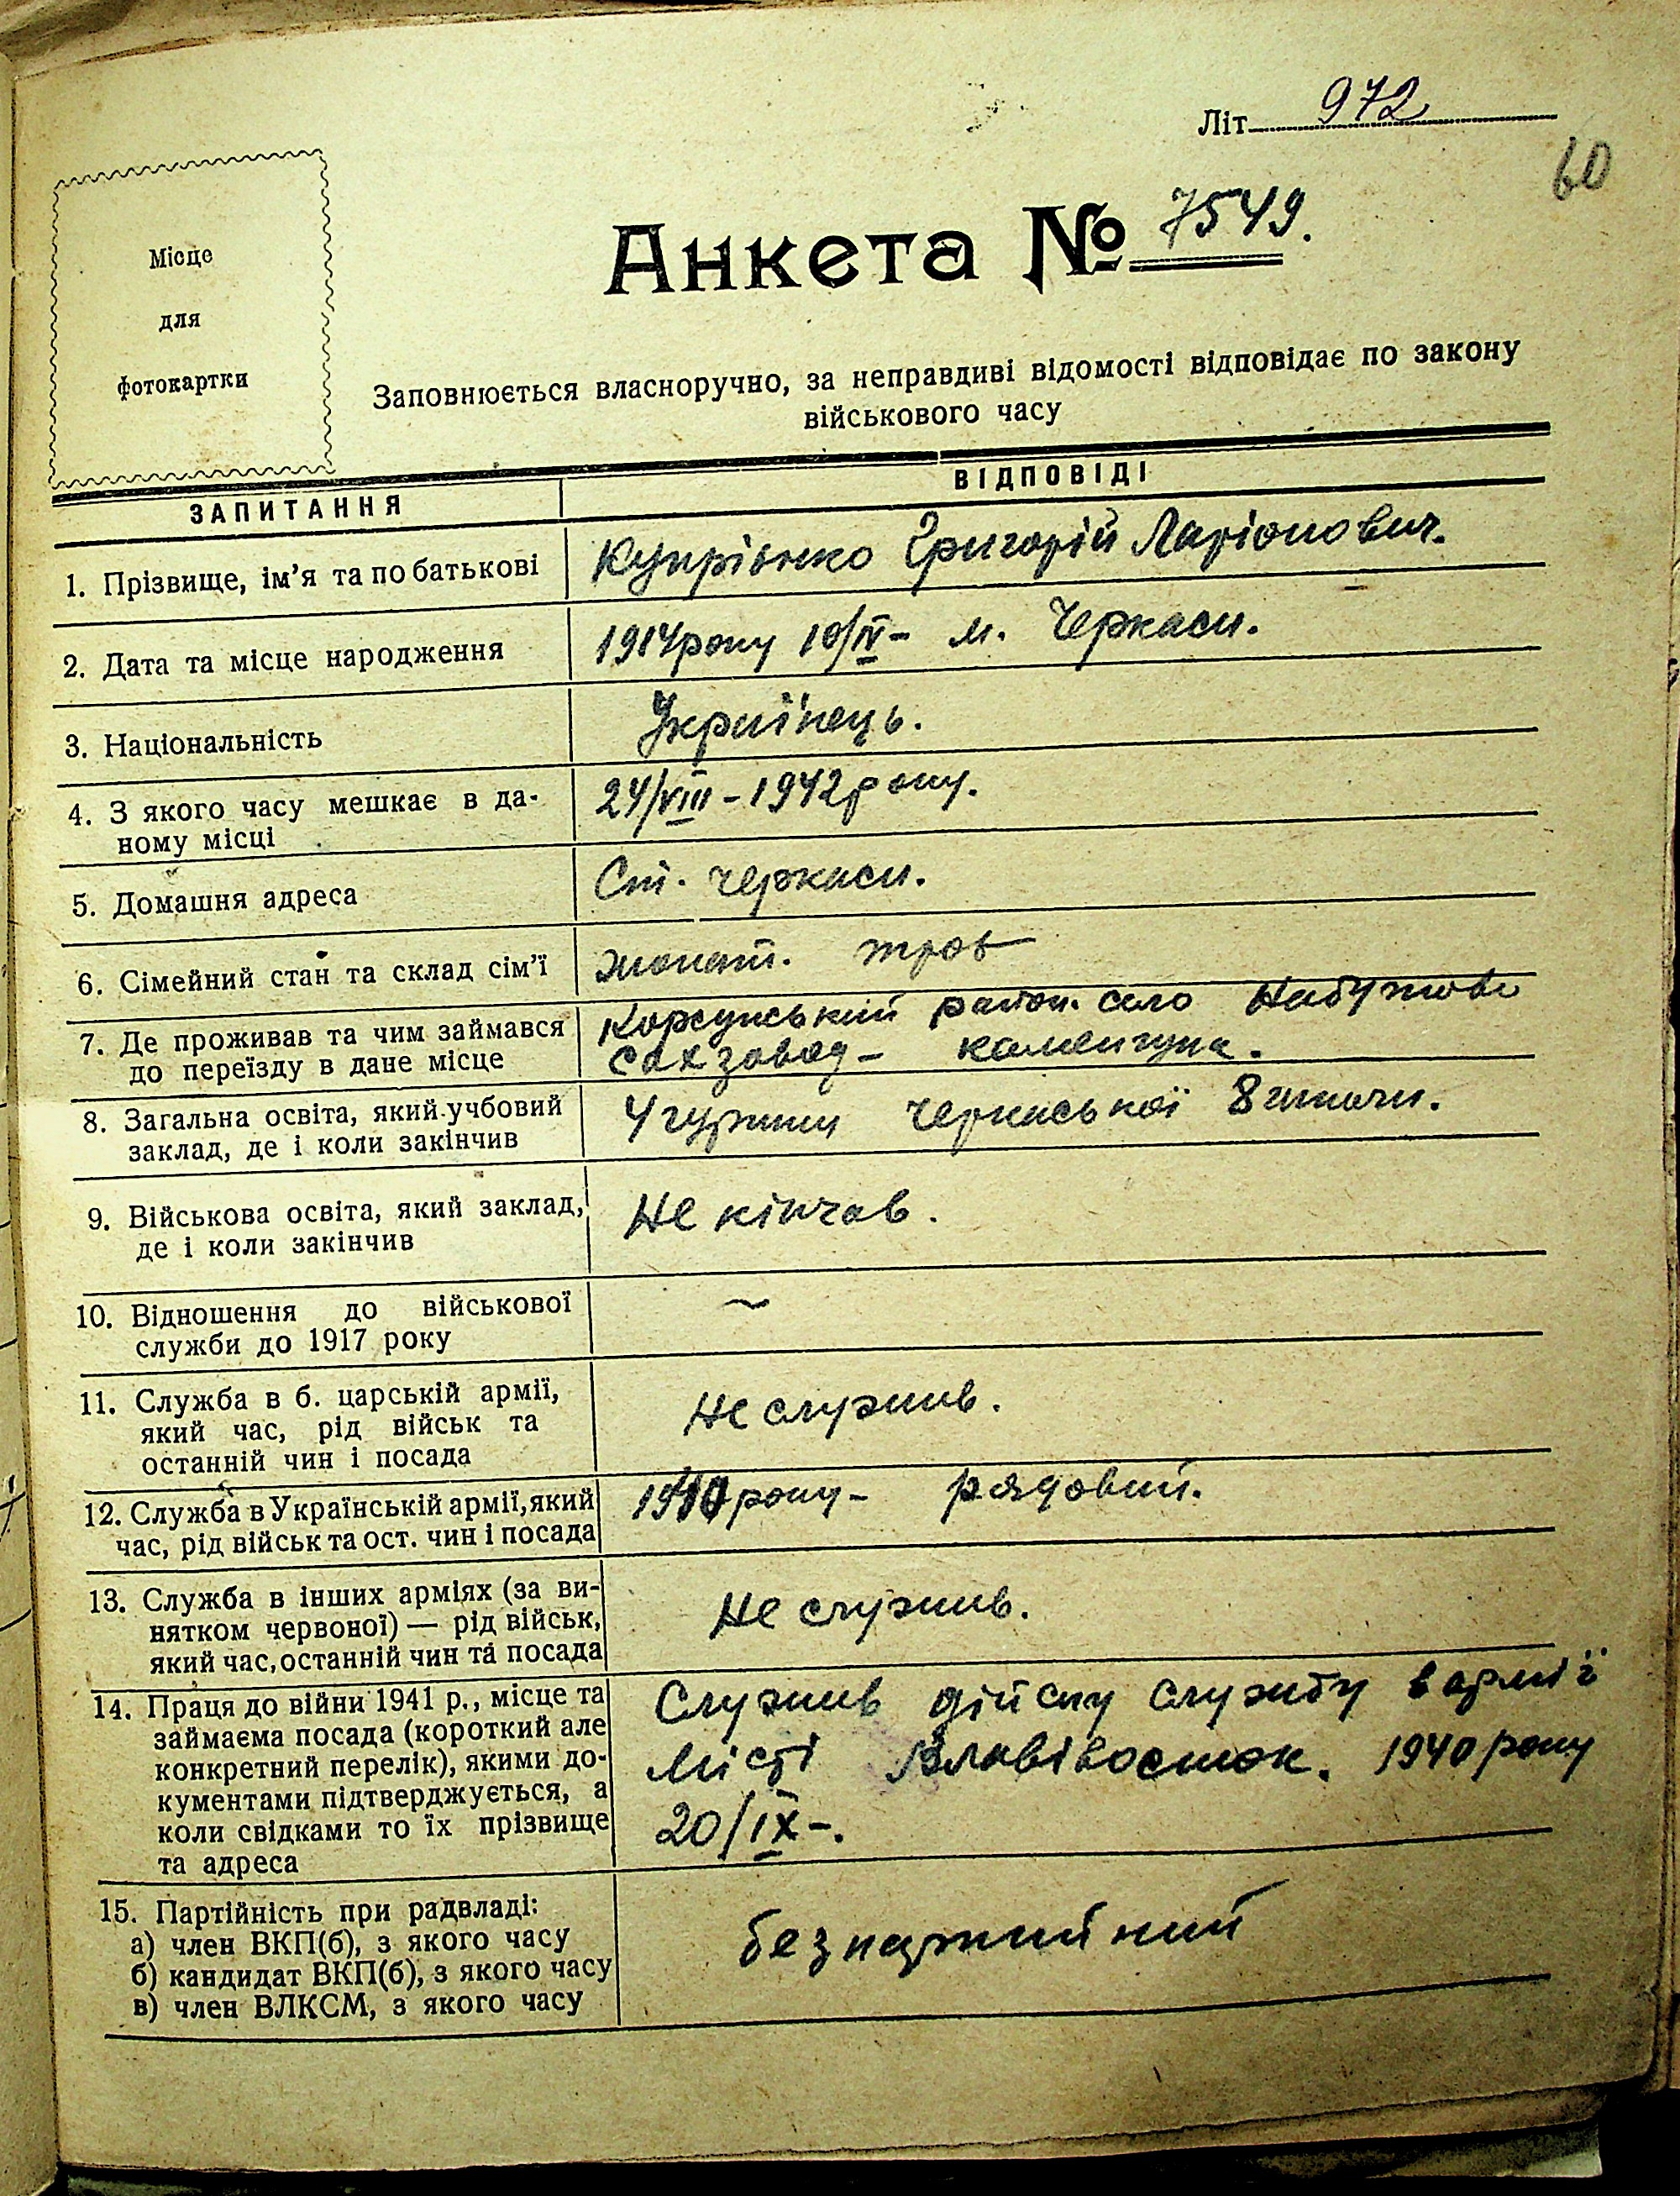 Літ 972
60
Місце
для
фотокартки
Анкета № 7549.
Заповнюється власноручно, за неправдиві відомості відповідає по закону
військового часу
ЗАПИТАННЯ ВІДПОВІДІ
1. Прізвище, ім'я та по батькові Купріянко Григорій Ларіонович.
2. Дата та місце народження 1914 року 10/IV - м. Черкаси.
3. Національність Українець.
4. З якого часу мешкає в да-
ному місці
24/VIII - 1942 року.
5. Домашня адреса Ст. Черкаси.
6. Сімейний стан та склад сім'ї жонат.
7. Де проживав та чим займався
до переїзду в дане місце
Корсунський район. село Набутово
сахзавод -
8. Загальна освіта, який учбовий
заклад, де і коли закінчив
4 групи Черкаської 8 школи.
9. Військова освіта, який заклад,
де і коли закінчив
Не кінчав.
10. Відношення до військової
служби до 1917 року
~
11. Служба в б. царській армії,
який час, рід військ та
останній чин і посада
Не служив.
12. Служба в Українській армії, який
час, рід військ та ост. чин і посада
року - рядовий.
13. Служба в інших арміях (за ви-
нятком червоної) — рід військ,
який час, останній чин та посада
Не служив.
14. Праця до війни 1941 р., місце та
займаєма посада (короткий але
конкретний перелік), якими до-
кументами підтверджується, а
коли свідками то їх прізвище
та адреса
Служив дійсну службу в армії
місті Владівосток. 1940 року
20/IX -.
15. Партійність при радвладі:
а) член ВКП(б), з якого часу
б) кандидат ВКП(б), з якого часу
в) член ВЛКСМ, з якого часу
безпартийний